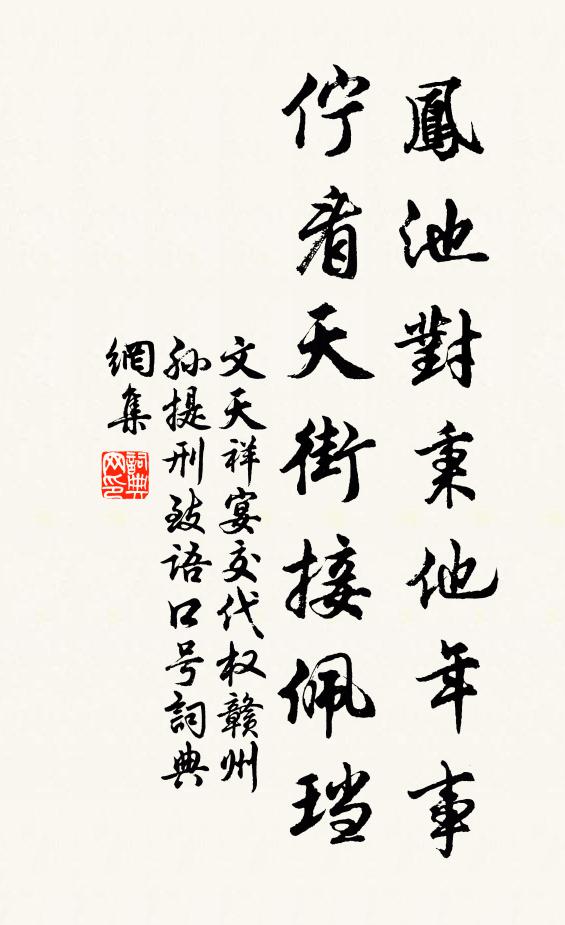 鳳池對秉他年事
佇看天街接佩珰
文天祥宴交代权贛州
孙提刑致语口号詞典
網集
詞典網印